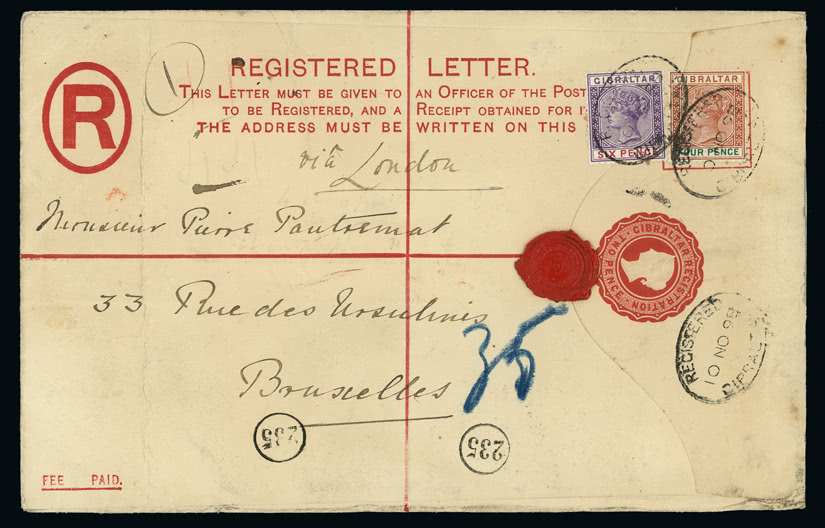 R
1
REGISTERED LETTER.
THIS LETTER MUST BE GIVEN TO AN OFFICER OF THE POST
TO BE REGISTERED, AND A RECEIPT OBTAINED FOR I
THE ADDRESS MUST BE WRITTEN ON THIS
GIBRALTAR
SIX PENCE
GIBRALTAR
FOUR PENCE
REGISTERED
10 NO 98
GIBRALTAR
via London
Monsieur Pierre
GIBRALTAR REGISTRATION
TWO PENCE
33 Rue des Ursulines
REGISTERED
10 NO 98
GIBRALTAR
35
Bruxelles
235
235
FEE PAID.